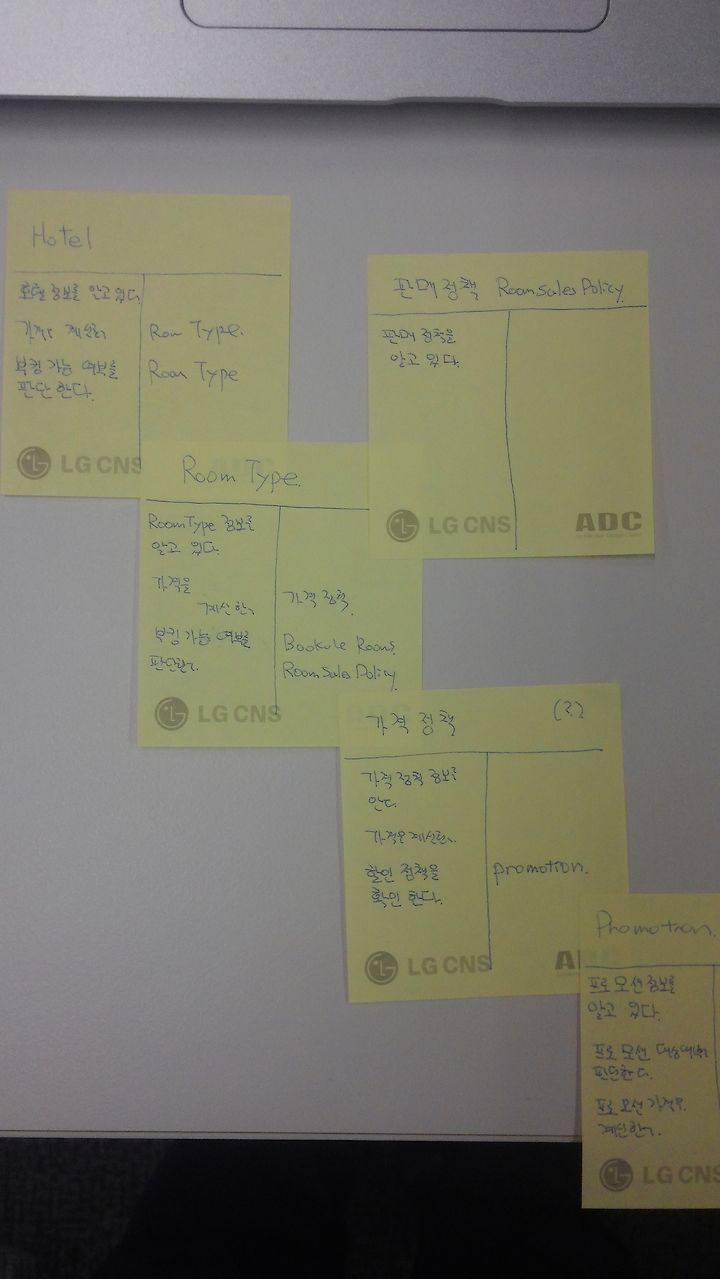 Hotel
호텔 정보를 알고 있다.
가격을 계산한다
Room Type.
부킹 가능 여부를
판단 한다.
Room Type
LG CNS
판매 정책 RoomSales Policy
판매 정책을
알고 있다.
LG CNS ADC
Room Type.
RoomType 정보를
알고 있다.
가격을
계산한다
가격 정책.
부킹 가능 여부를
판단한다.
Room Sales Policy
LG CNS
가격 정책 (2)
가격 정책 정보를
안다.
가격을 계산한다.
할인 정책을
확인 한다.
promotion.
LG CNS
Promotion.
프로모션 정보를
알고 있다.
프로 모션 대상여부
판단한다.
프로 모션 가격을
계산한다.
LG CNS